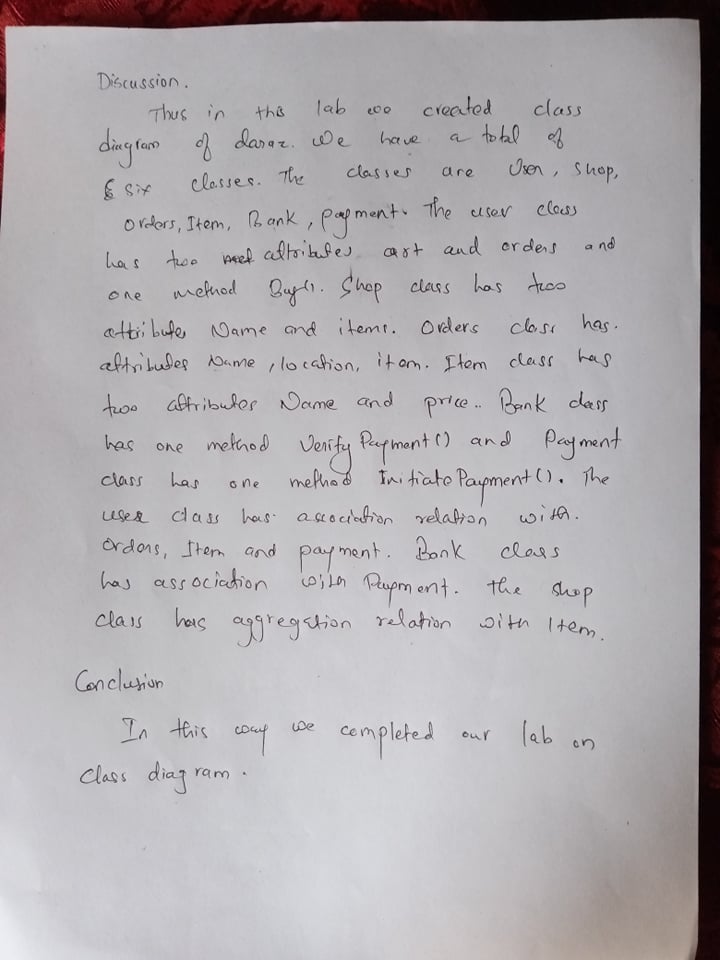 Discussion.
Thus in this lab we created class
diagram of daraz. We have a total of
six classes. The classes are User, Shop,
Orders, Item, Bank, payment. The user class
has two attributes cart and orders and
one method Buy(). Shop class has two
attributes Name and items. Orders class has.
attributes Name, location, item. Item class has
two attributes Name and price.. Bank class
has one method Verify Payment() and Payment
class has one method Initiate Payment(). The
user class has association relation with.
Orders, Item and payment. Bank class
has association with Payment. the shop
class has aggregation relation with Item.
Conclusion
In this way we completed our lab on
class diagram.